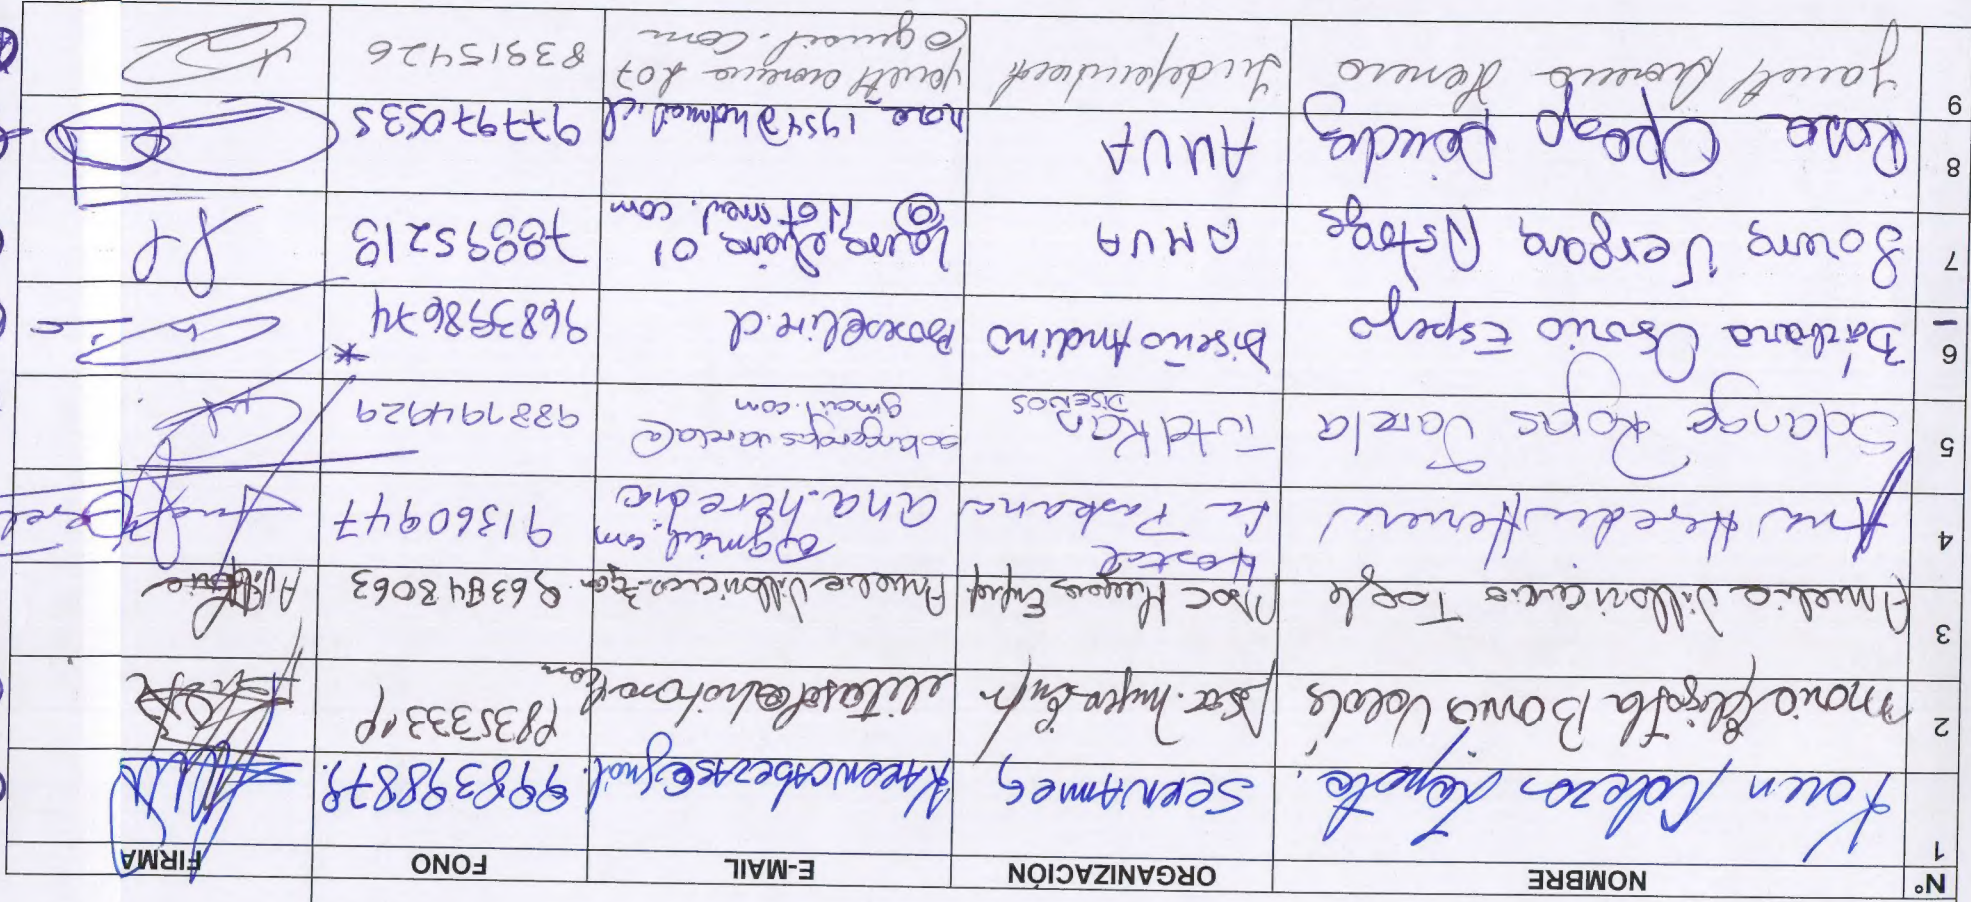 N° NOMBRE ORGANIZACIÓN E-MAIL FONO FIRMA
1 Karen Cabezas SERNAMEG KarenCabezas@gmail. 998398879.
2 Maria Elisa Barrios Valdés Asoc. Mujeres Enfr 98353331
3 Amelia Villavicencio Tagle Asoc Mujeres Amelia.Villavicencio 963848063
4 Ana Heredia Herrera Hostal La Paskana ana.heredia @gmail.com 91360947
5 Solange Rojas Varela DISEÑOS solangerojasvarela@ gmail.com 988794929
6 Bárbara Osorio Espejo Diseño Andino 968398674
7 Laura Vergara Astorga AMUA @Hotmail.com 78895218
8 Rosa Opazo AMUA rosa_1954@hotmail.cl 977970535
9 Yanett Moreno Independiente yanettmoreno207 @gmail.com 83915426